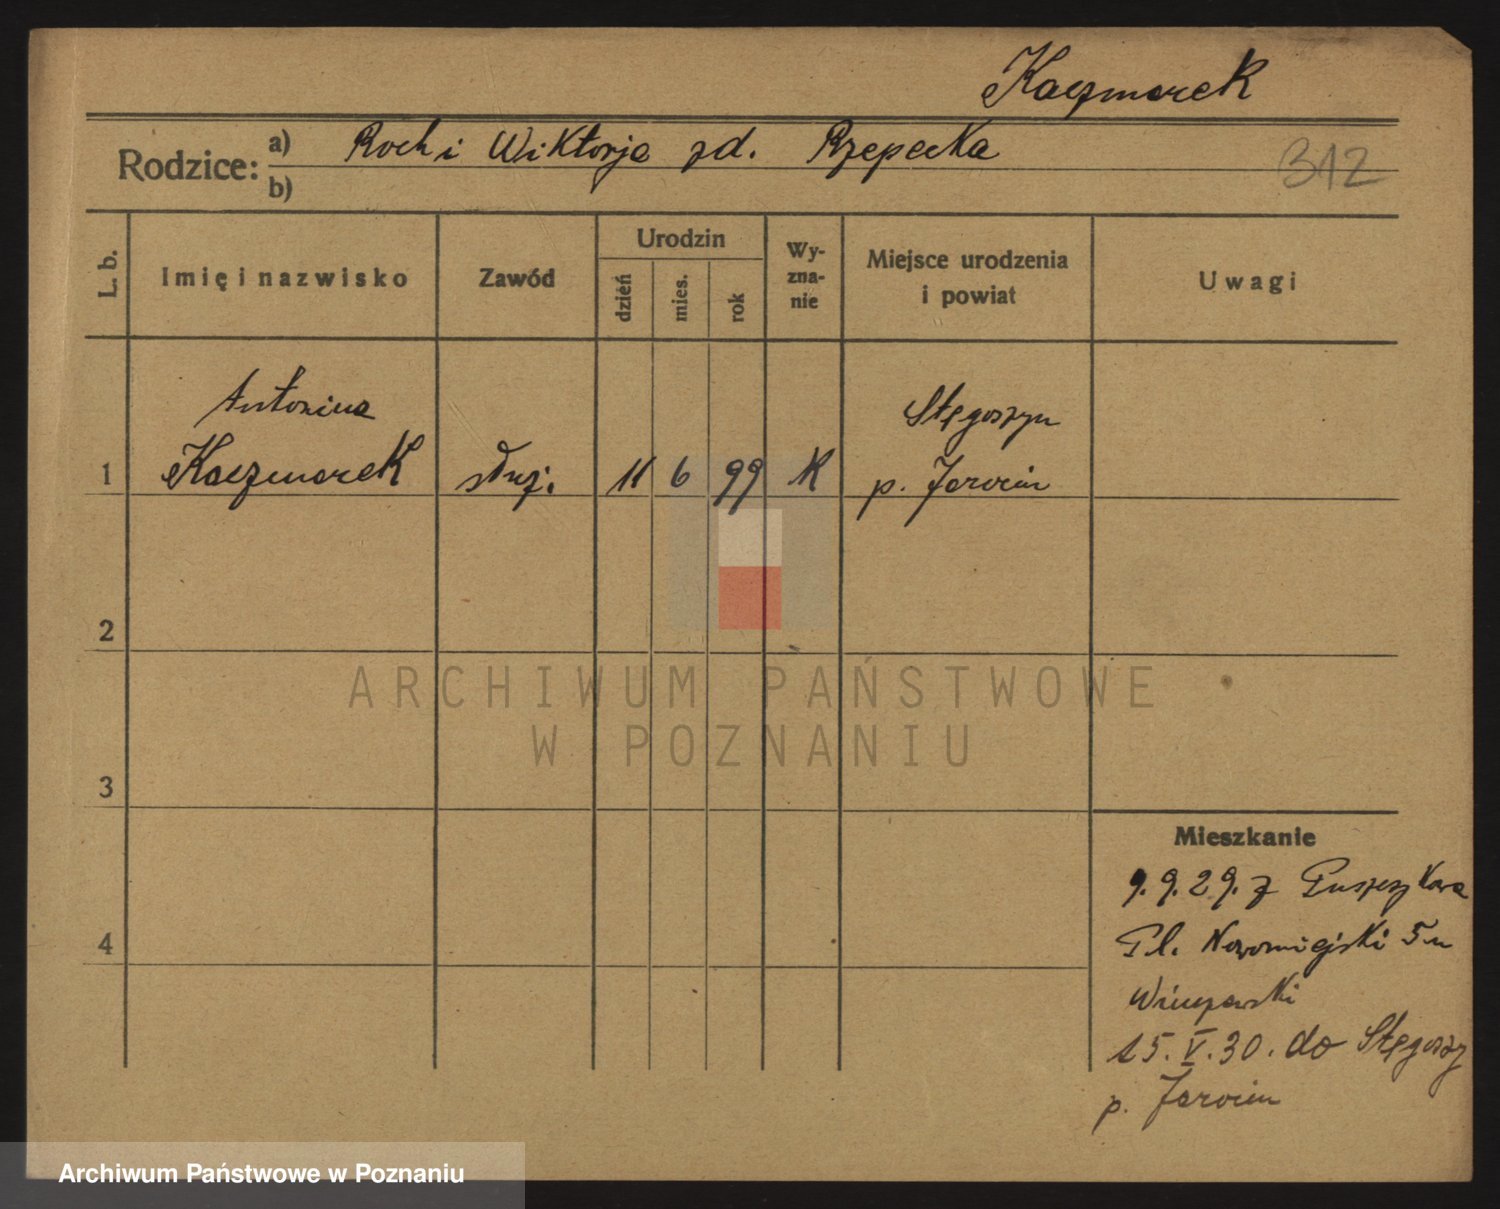 Kaczmarek
Rodzice: a) Roch i Wiktorja zd. Rzepecka
b)
312
L. b. Imię i nazwisko Zawód Urodzin dzień mies. rok Wy-zna-nie Miejsce urodzenia i powiat Uwagi
Antonina Stęgoszyn
1 Kaczmarek służ. 11 6 99 K p. Jarocin
2
3
4
Mieszkanie
9.9.29. z
Pl. Nowomiejski 5 u
15.V.30. do Stęgoszy
p. Jarocin
ARCHIWUM PAŃSTWOWE
W POZNANIU
Archiwum Państwowe w Poznaniu